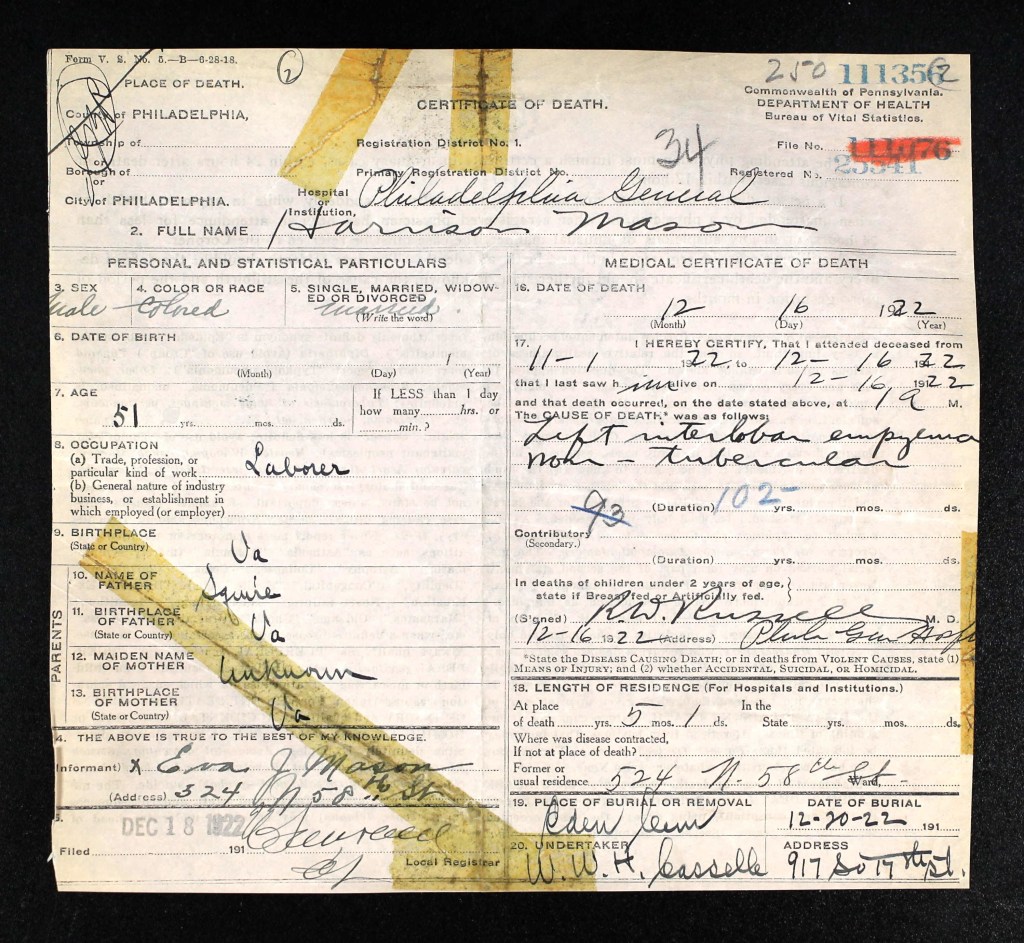 Form V. S. No. 5.—B—6-28-18.
2
250 111356
1. PLACE OF DEATH.
Commonwealth of Pennsylvania.
County of PHILADELPHIA,
CERTIFICATE OF DEATH.
DEPARTMENT OF HEALTH
Bureau of Vital Statistics.
Township of
Registration District No. 1.
34
File No.
or
Borough of
Primary Registration District No.
Registered No. 25541
or
City of PHILADELPHIA.
Hospital or Institution, Philadelphia General
2. FULL NAME Harrison Mason
PERSONAL AND STATISTICAL PARTICULARS
3. SEX
male
4. COLOR OR RACE
Colored
5. SINGLE, MARRIED, WIDOWED OR DIVORCED
Married
(Write the word)
6. DATE OF BIRTH
1
(Month) (Day) (Year)
7. AGE
51 yrs. mos. ds.
If LESS than 1 day
how many hrs. or
min.?
8. OCCUPATION
(a) Trade, profession, or
particular kind of work Laborer
(b) General nature of industry
business, or establishment in
which employed (or employer)
9. BIRTHPLACE
(State or Country) Va
PARENTS
10. NAME OF
FATHER Squire
11. BIRTHPLACE
OF FATHER
(State or Country) Va
12. MAIDEN NAME
OF MOTHER Unknown
13. BIRTHPLACE
OF MOTHER
(State or Country) Va
4. THE ABOVE IS TRUE TO THE BEST OF MY KNOWLEDGE.
Informant) x Eva J Mason
(Address) 524 N 58th St
5.
DEC 18 1922
Filed 191
Local Registrar
MEDICAL CERTIFICATE OF DEATH
16. DATE OF DEATH
12 16 1922
(Month) (Day) (Year)
17. I HEREBY CERTIFY, That I attended deceased from
11-1 1922, to 12-16 1922
that I last saw him alive on 12-16, 1922
and that death occurred, on the date stated above, at 1 a M.
The CAUSE OF DEATH,* was as follows:
Left interlobar empyema
non-tubercular
93 (Duration) 102- yrs. mos. ds.
Contributory
(Secondary.)
(Duration) yrs. mos. ds.
In deaths of children under 2 years of age,
state if Breast fed or Artificially fed.
(Signed) R.W. Russell M. D.
12-16 1922 (Address) Phila Gen Hosp
*State the DISEASE CAUSING DEATH; or in deaths from VIOLENT CAUSES, state (1)
MEANS OF INJURY; and (2) whether ACCIDENTAL, SUICIDAL, OR HOMICIDAL.
18. LENGTH OF RESIDENCE (For Hospitals and Institutions.)
At place In the
of death yrs. 5 mos. 1 ds. State yrs. mos. ds.
Where was disease contracted,
If not at place of death?
Former or
usual residence 524 N. 58th St Ward,
19. PLACE OF BURIAL OR REMOVAL
Eden Cem
DATE OF BURIAL
12-20-22 191
20. UNDERTAKER
W.W.H. Casselle
ADDRESS
917 So 17th St.